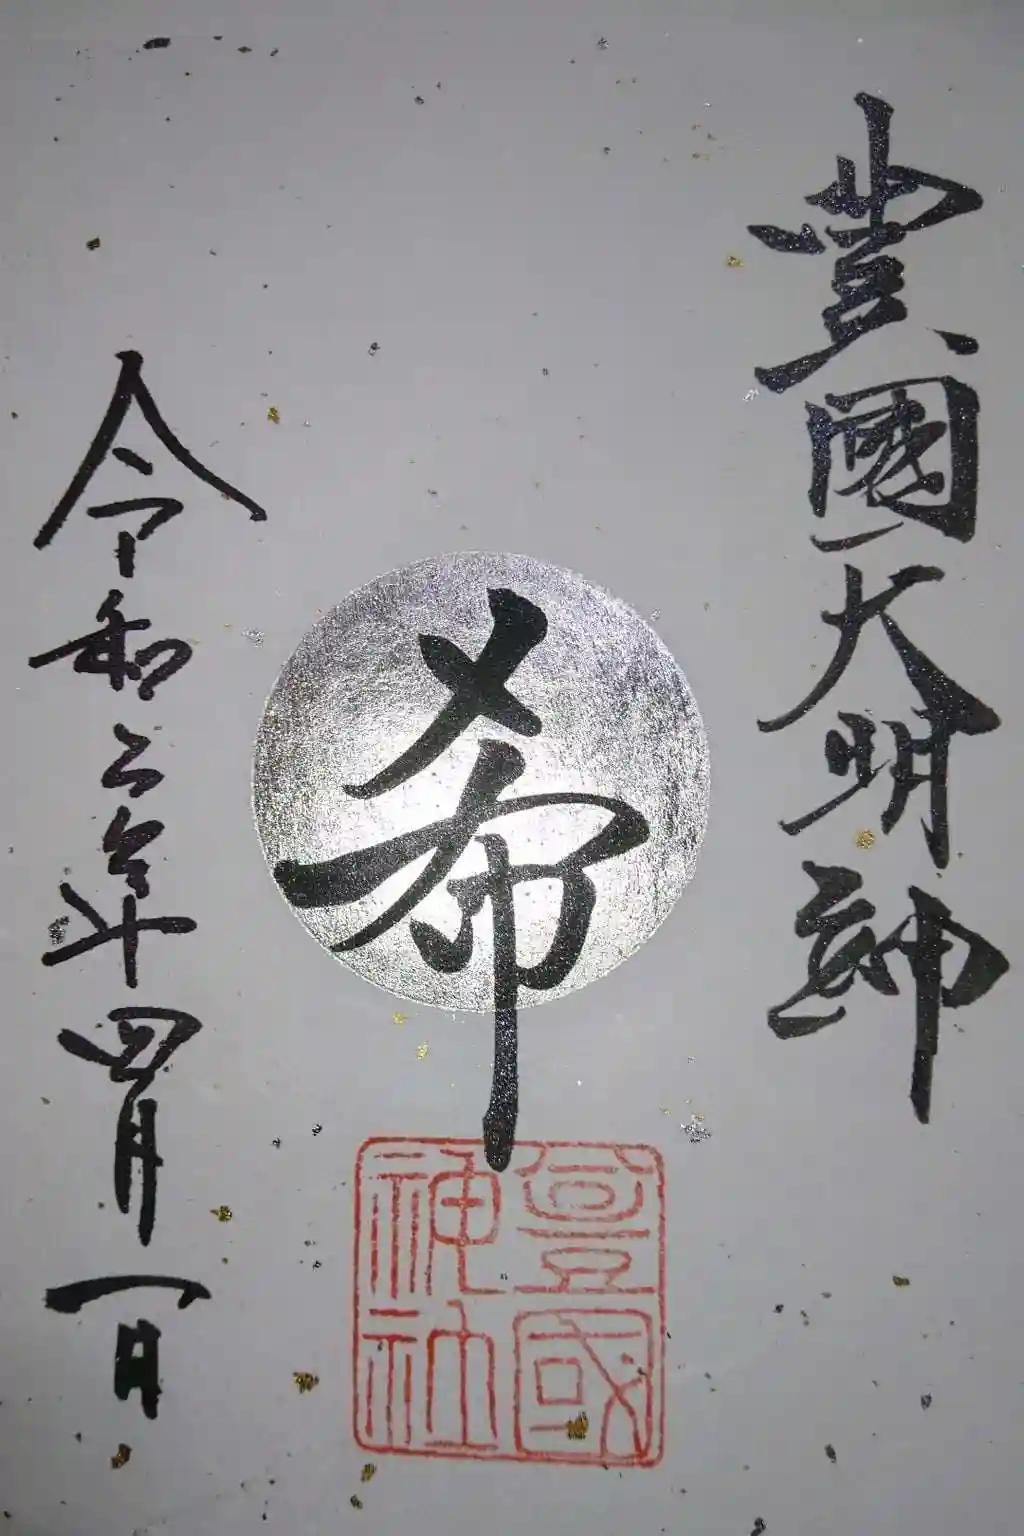 豐國大明神
希
豐國
神社
令和六年四月一日